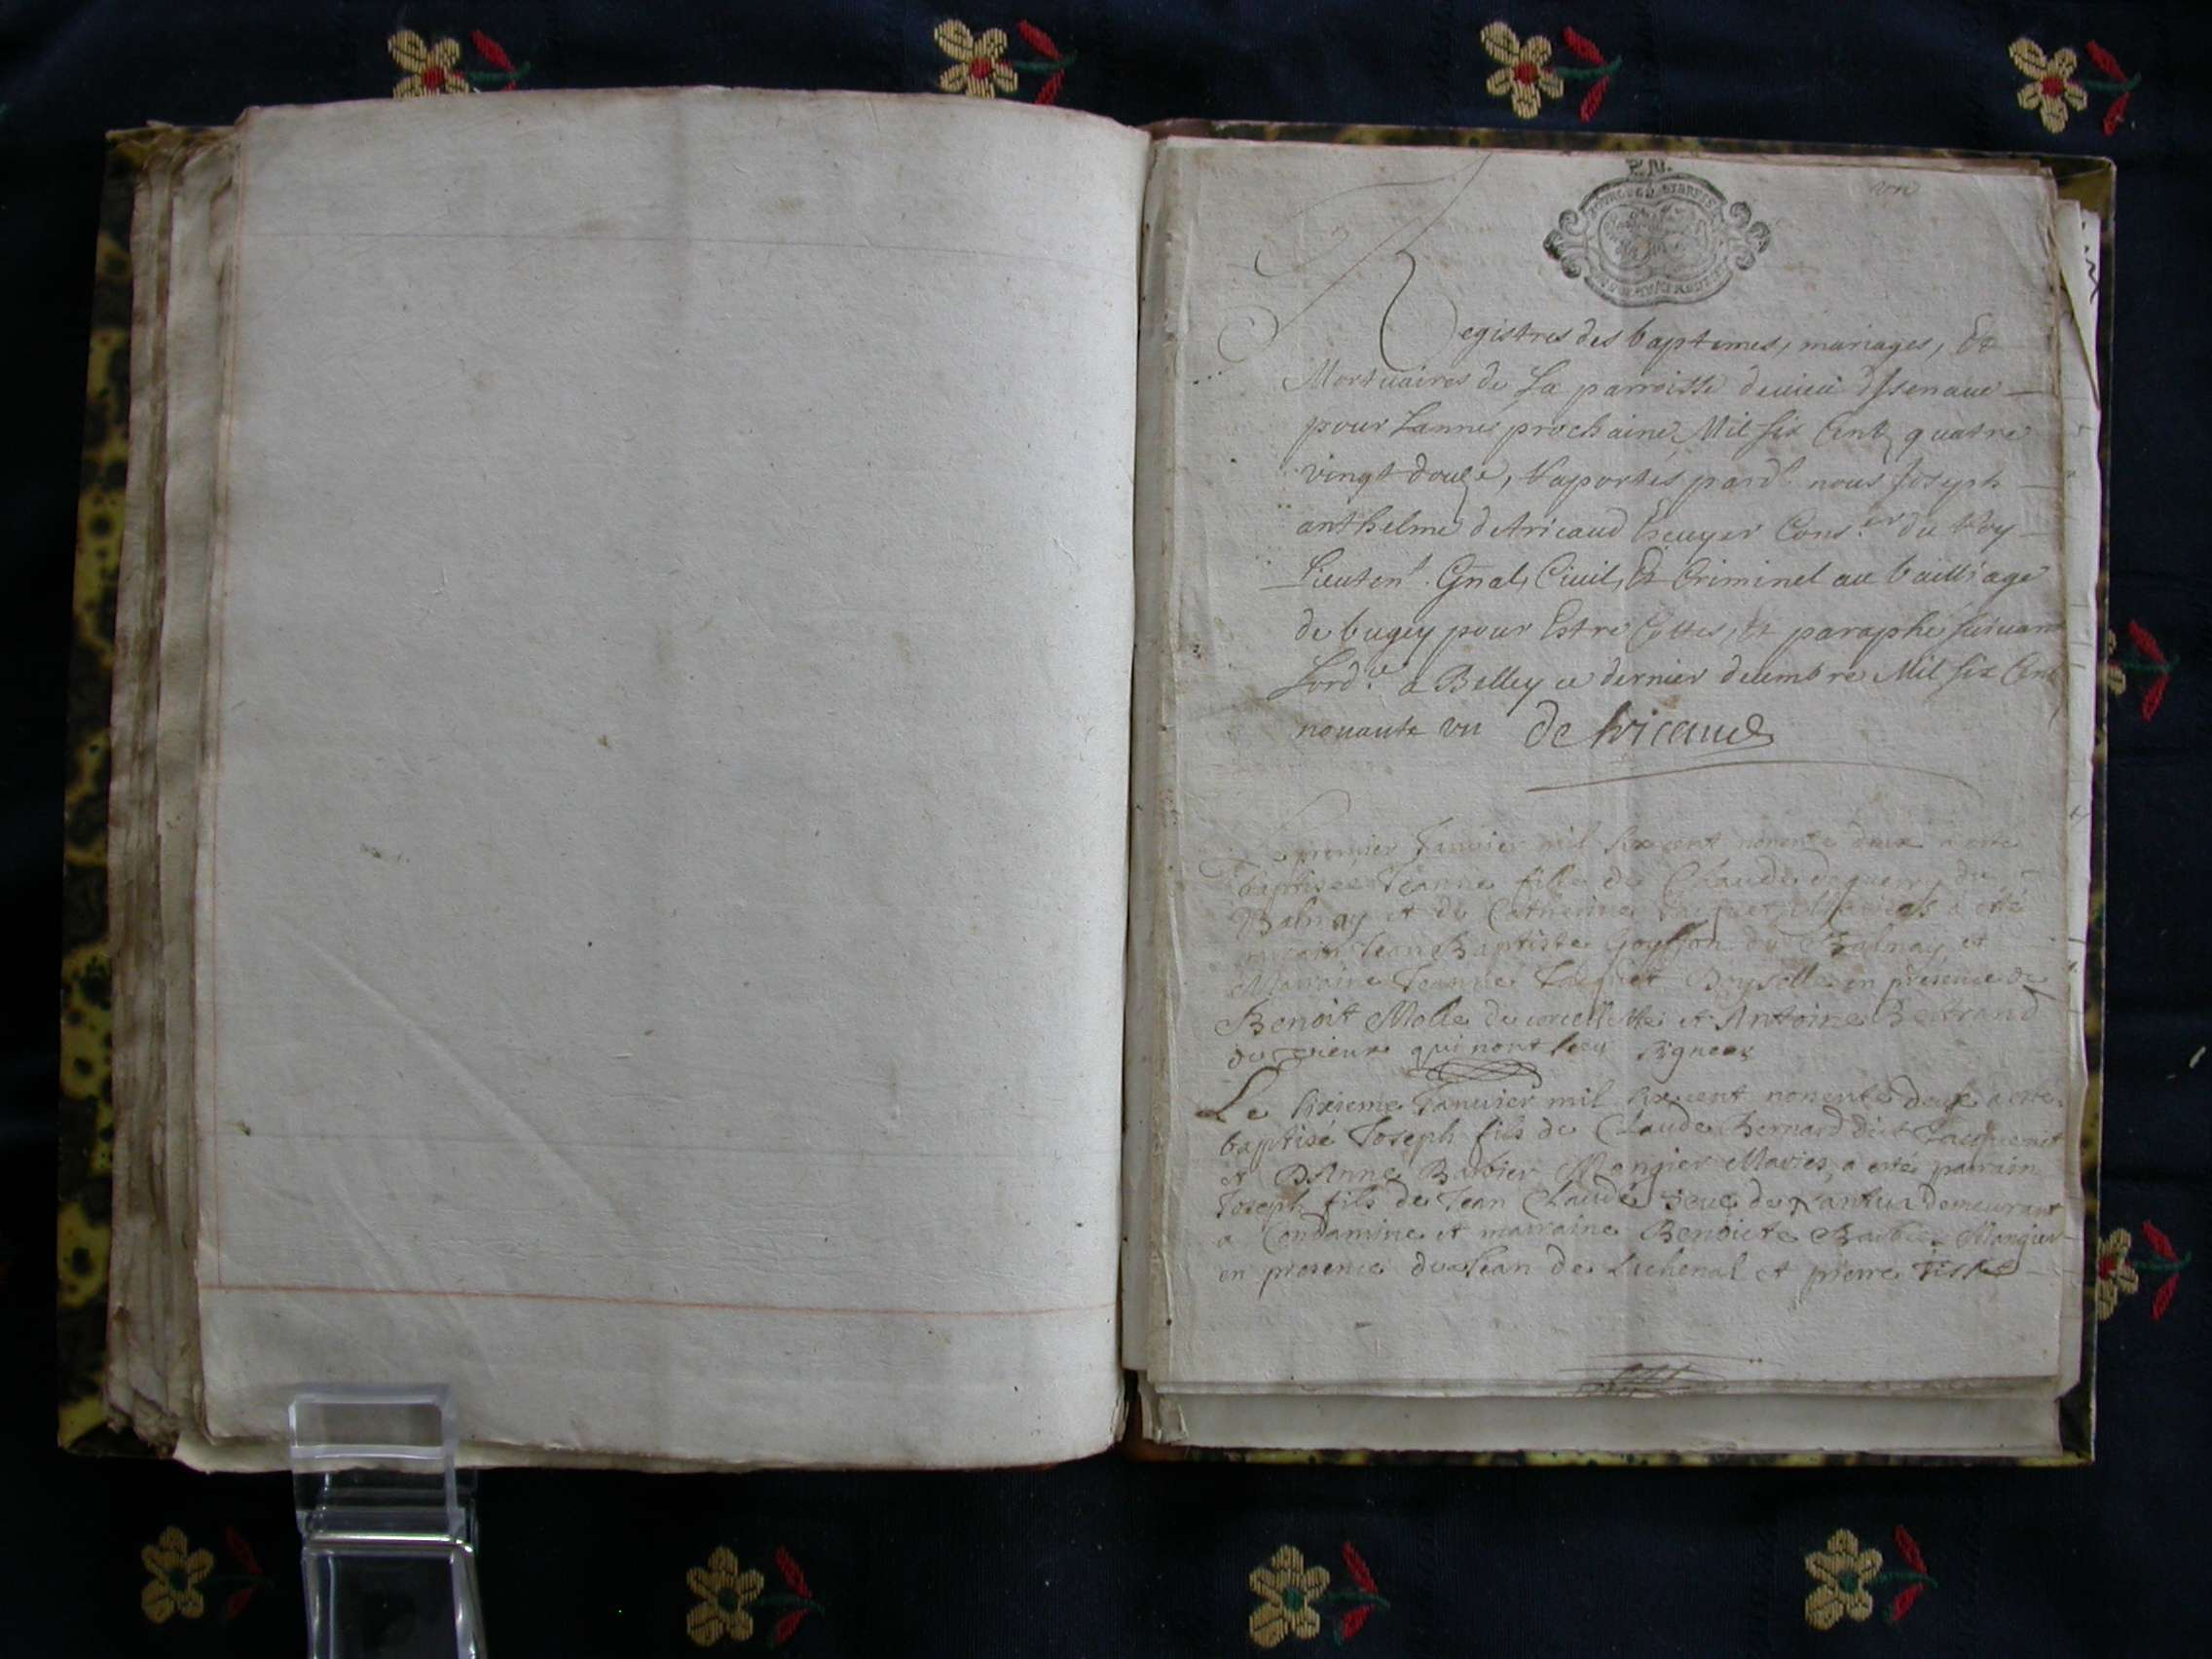 un
Registres des baptemes, mariages, Et
Mortuaires de La parroisse de vieu dIsenaue
pour Lannee prochaine Mil six Cent quatre
vingt douze, Raportés pard.t nous Joseph
anthelme deTricaud Escuyer Cons.er du Roy
Lieuten.t Gnal, Ciuil, Et Criminel au bailliage
de bugey pour Estre Cottes, Et paraphé suiuant
Lord.ce a Belley ce dernier decembre Mil six Cent
nonante un deTricaud
Le premier Januier mil six cent nonente deux a esté
baptisée Jeanne fille de Claude du
Balmay et de Catherine a esté
Jean Baptiste Goyffon du Balmay et
Marraine Jeanne en presence de
Benoit Molle de corcellette et Antoine Bertrand
de vieux qui nont sceu signer
Le sixieme Januier mil six cent nonente deux a esté
baptisé Joseph fils de Claude Bernard dict Jacquemet
et DAnne Barbier Mangier Maries, a esté parrain
Joseph fils de Jean Claude de Nantua demeurant
a Condamine et marraine Benoicte Barbier Mangier
en presence de Jean de Lachenal et pierre